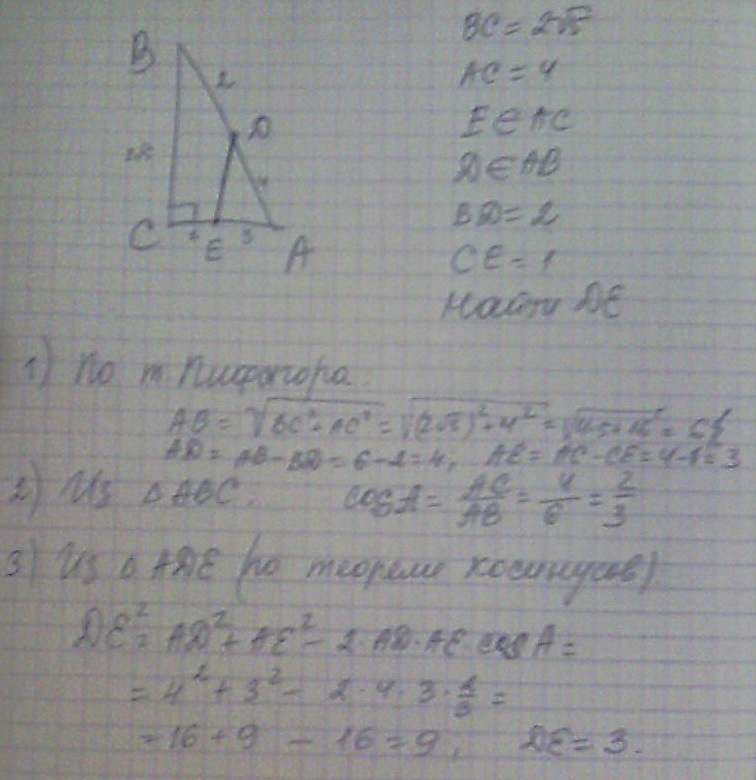 BC = 2√5
AC = 4
E ∈ AC
D ∈ AB
BD = 2
CE = 1
Найти DE
B
2
D
2√5
C
E
3
A
1) По т. Пифагора
AB = √BC² + AC² = √(2√5)² + 4² = √4·5+16 = 6
AD = AB - BD = 6 - 2 = 4, AE = AC - CE = 4 - 1 = 3
2) Из △ABC. cos A = AC/AB = 4/6 = 2/3
3) Из △ADE (по теореме косинусов)
DE² = AD² + AE² - 2·AD·AE·cos A =
= 4² + 3² - 2·4·3·2/3 =
= 16 + 9 - 16 = 9, DE = 3.